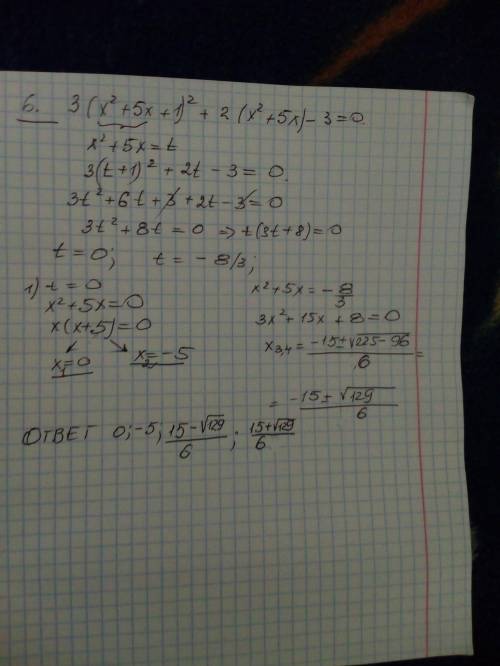 6. 3(x²+5x+1)² + 2(x²+5x)-3=0.
x²+5x=t
3(t+1)² + 2t - 3 = 0.
3t²+6t+3+2t-3=0
3t²+8t=0 => t(3t+8)=0
t=0; t = - 8/3;
1) t=0
x²+5x=0
x(x+5)=0
x₁=0 x₂=-5
x²+5x=-8/3
3x²+15x+8=0
x₃,₄ = (-15±√225-96)/6 =
= (-15±√129)/6
ОТВЕТ 0; -5; (15-√129)/6; (15+√129)/6